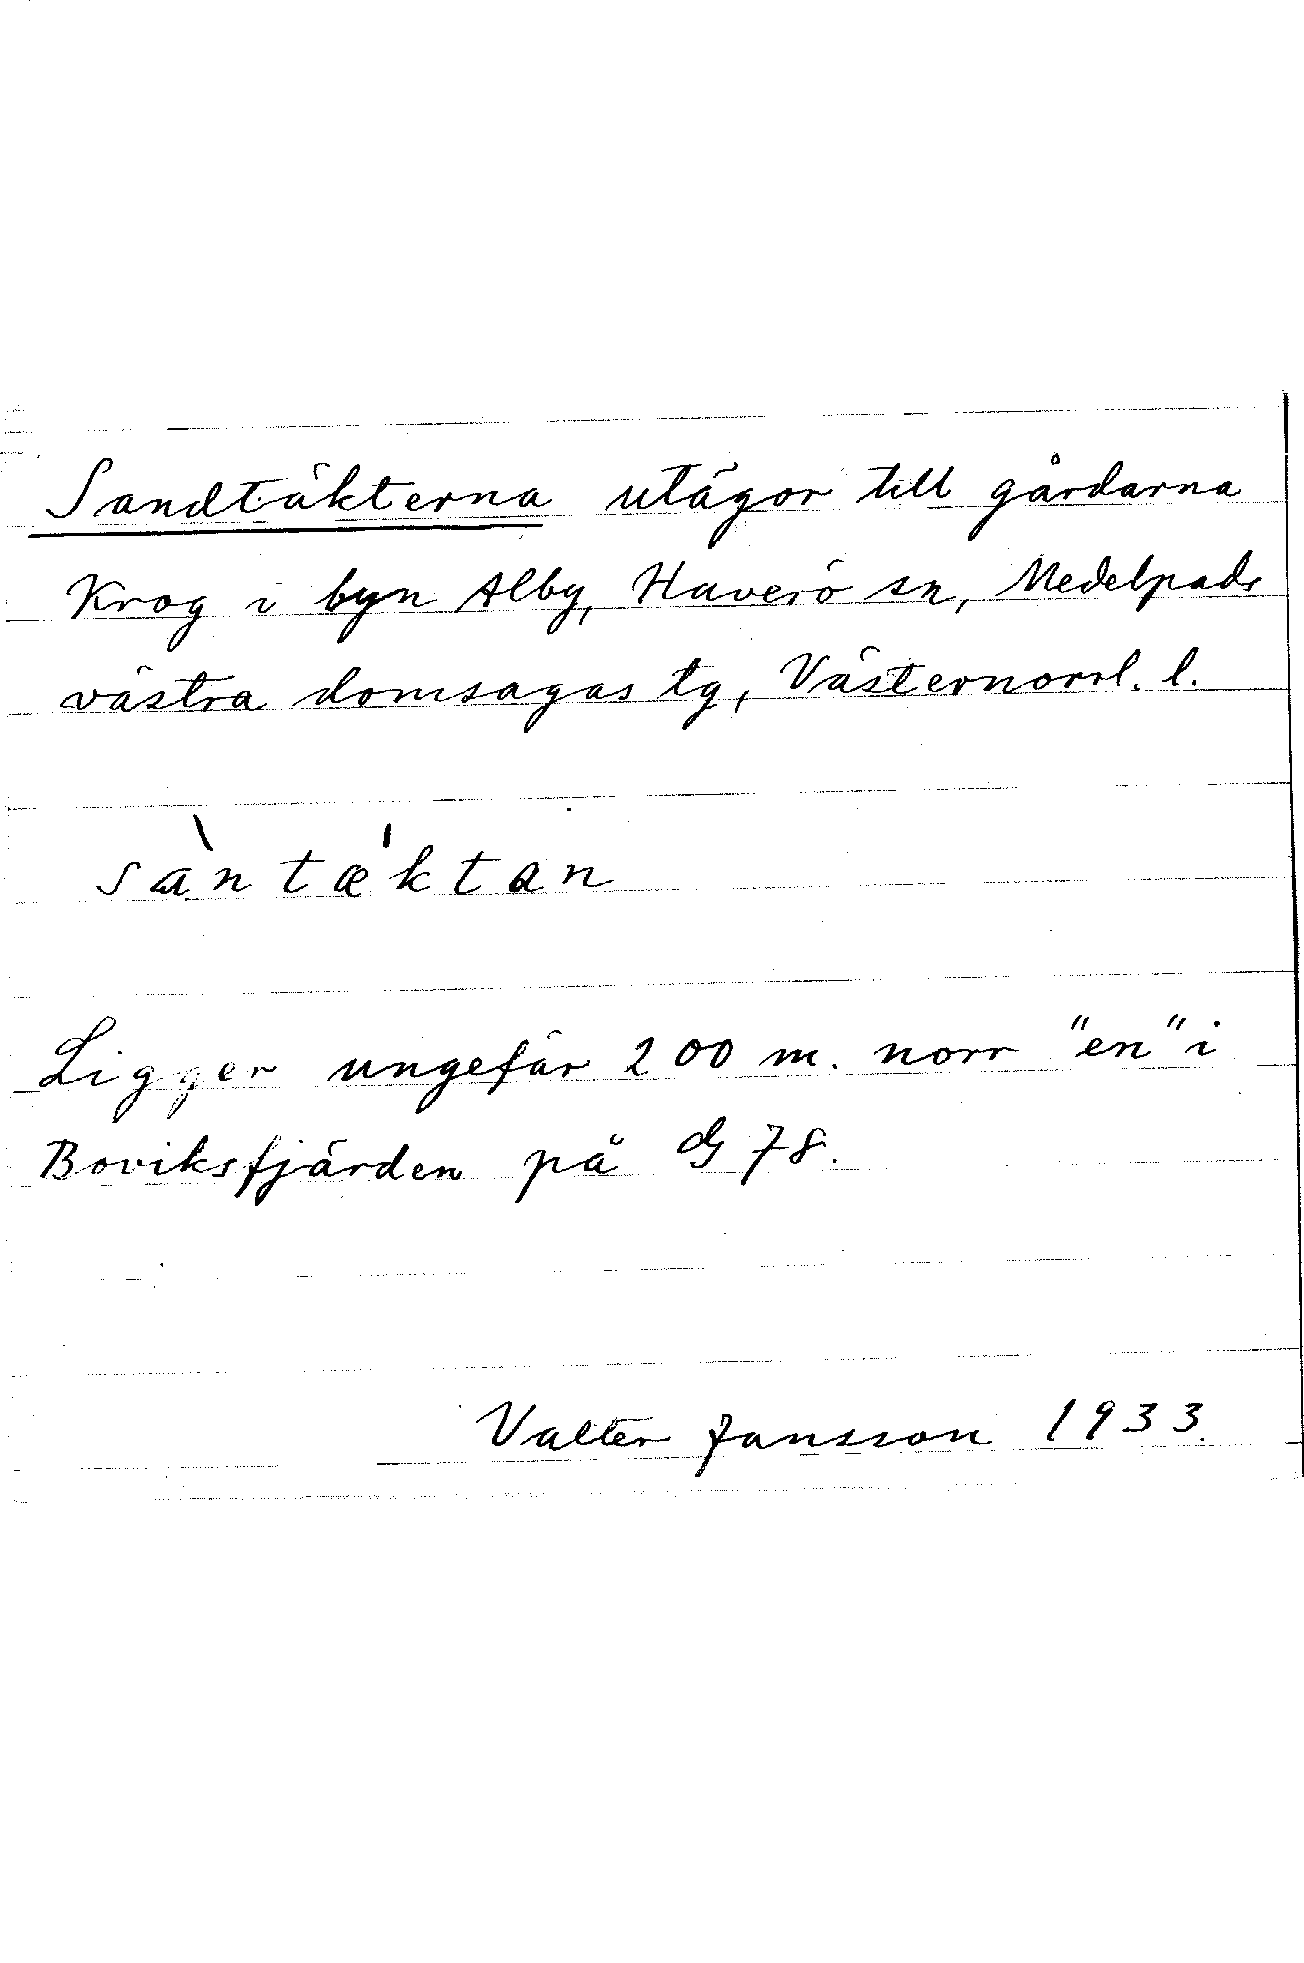 Sandtäkterna utägor till gårdarna
Krog i byn Alby, Haverö sn, Medelpads
västra domsagas tg, Västernorrl. l.
sàntæ'ktan
Ligger ungefär 200 m. norr "en" i
Boviksfjärden på G 78.
Valter Jansson 1933.